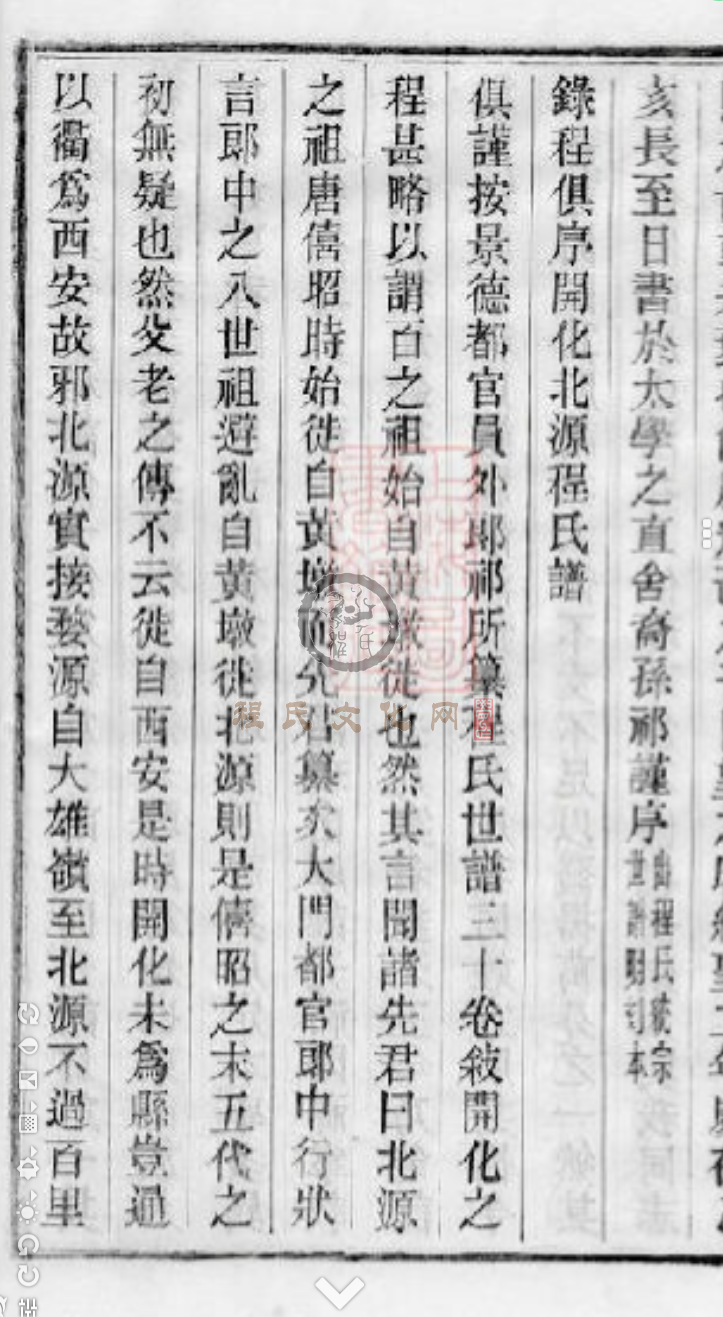 亥長至日書於太學之直舍裔孫祁謹序
錄程俱序開化北源程氏譜
俱謹按景德都官員外郎祁所纂程氏世譜三十卷敍開化之
程甚略以謂百之祖始自黃墩徙也然其言聞諸先君曰北源
之祖唐僖昭時始徙自黃墩而先君纂次大門都官郎中行狀
言郎中之八世祖避亂自黃墩徙北源則是僖昭之末五代之
初無疑也然父老之傳不云徙自西安是時開化未爲縣豈過
以衢爲西安故邪北源實接婺源自大雄嶺至北源不過百里
程氏文化网